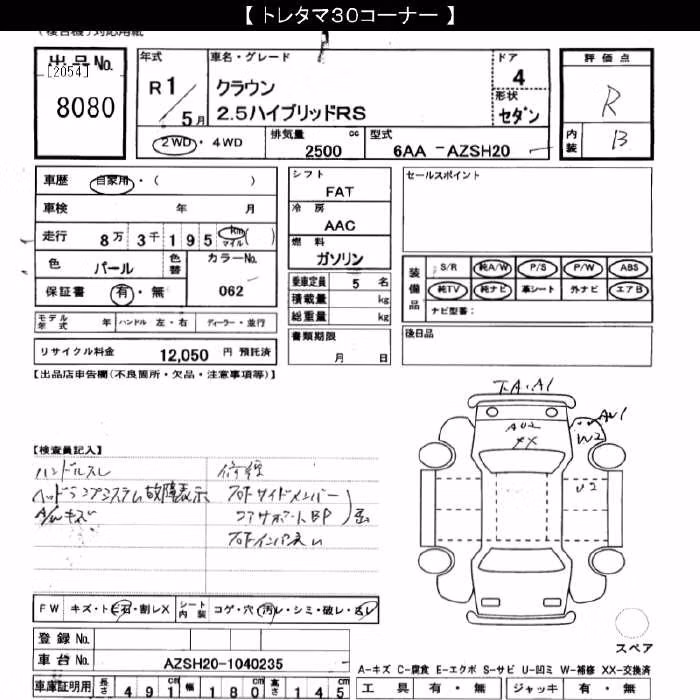 【 トレタマ30コーナー 】
出品No.
[2054]
8080
年式
R1/5月
車名・グレード
クラウン
2.5ハイブリッドRS
ドア
4
形状
セダン
評価点
R
内装
B
2WD・4WD
排気量 cc
2500
型式
6AA -AZSH20
車歴 自家用・( )
車検 年 月
走行 8万3千195 km マイル ( )
色 パール 色替
カラーNo.
062
保証書 有・無
シフト
FAT
冷房
AAC
燃料
ガソリン
乗車定員 5 名
積載量 kg
総重量 kg
書類期限
月 日
セールスポイント
装備品
S/R 純A/W P/S P/W ABS
純TV 純ナビ 革シート 外ナビ エアB
ナビ型番:
後日品
モデル年式 年 ハンドル 左・右 ディーラー・並行
リサイクル料金 12,050 円 預託済
【出品店申告欄(不良箇所・欠品・注意事項等)】
【検査員記入】
ハンドルスレ
ヘッドランプシステム故障表示
A/Wキズ
修歴
フロトサイドメンバー
コアサポートBP
フロトインパネ
A1
AU2
XX
AU1
W2
U2
FW キズ・ト石・割レX
シート内装 コゲ・穴・汚レ・シミ・破レ・スレ
登録No.
車台No. AZSH20-1040235
車庫証明用 長さ 491cm 幅 180cm 高さ 145cm
スペア
A-キズ C-腐食 E-エクボ S-サビ U-凹ミ W-補修 XX-交換済
工具 有・無 ジャッキ 有・無